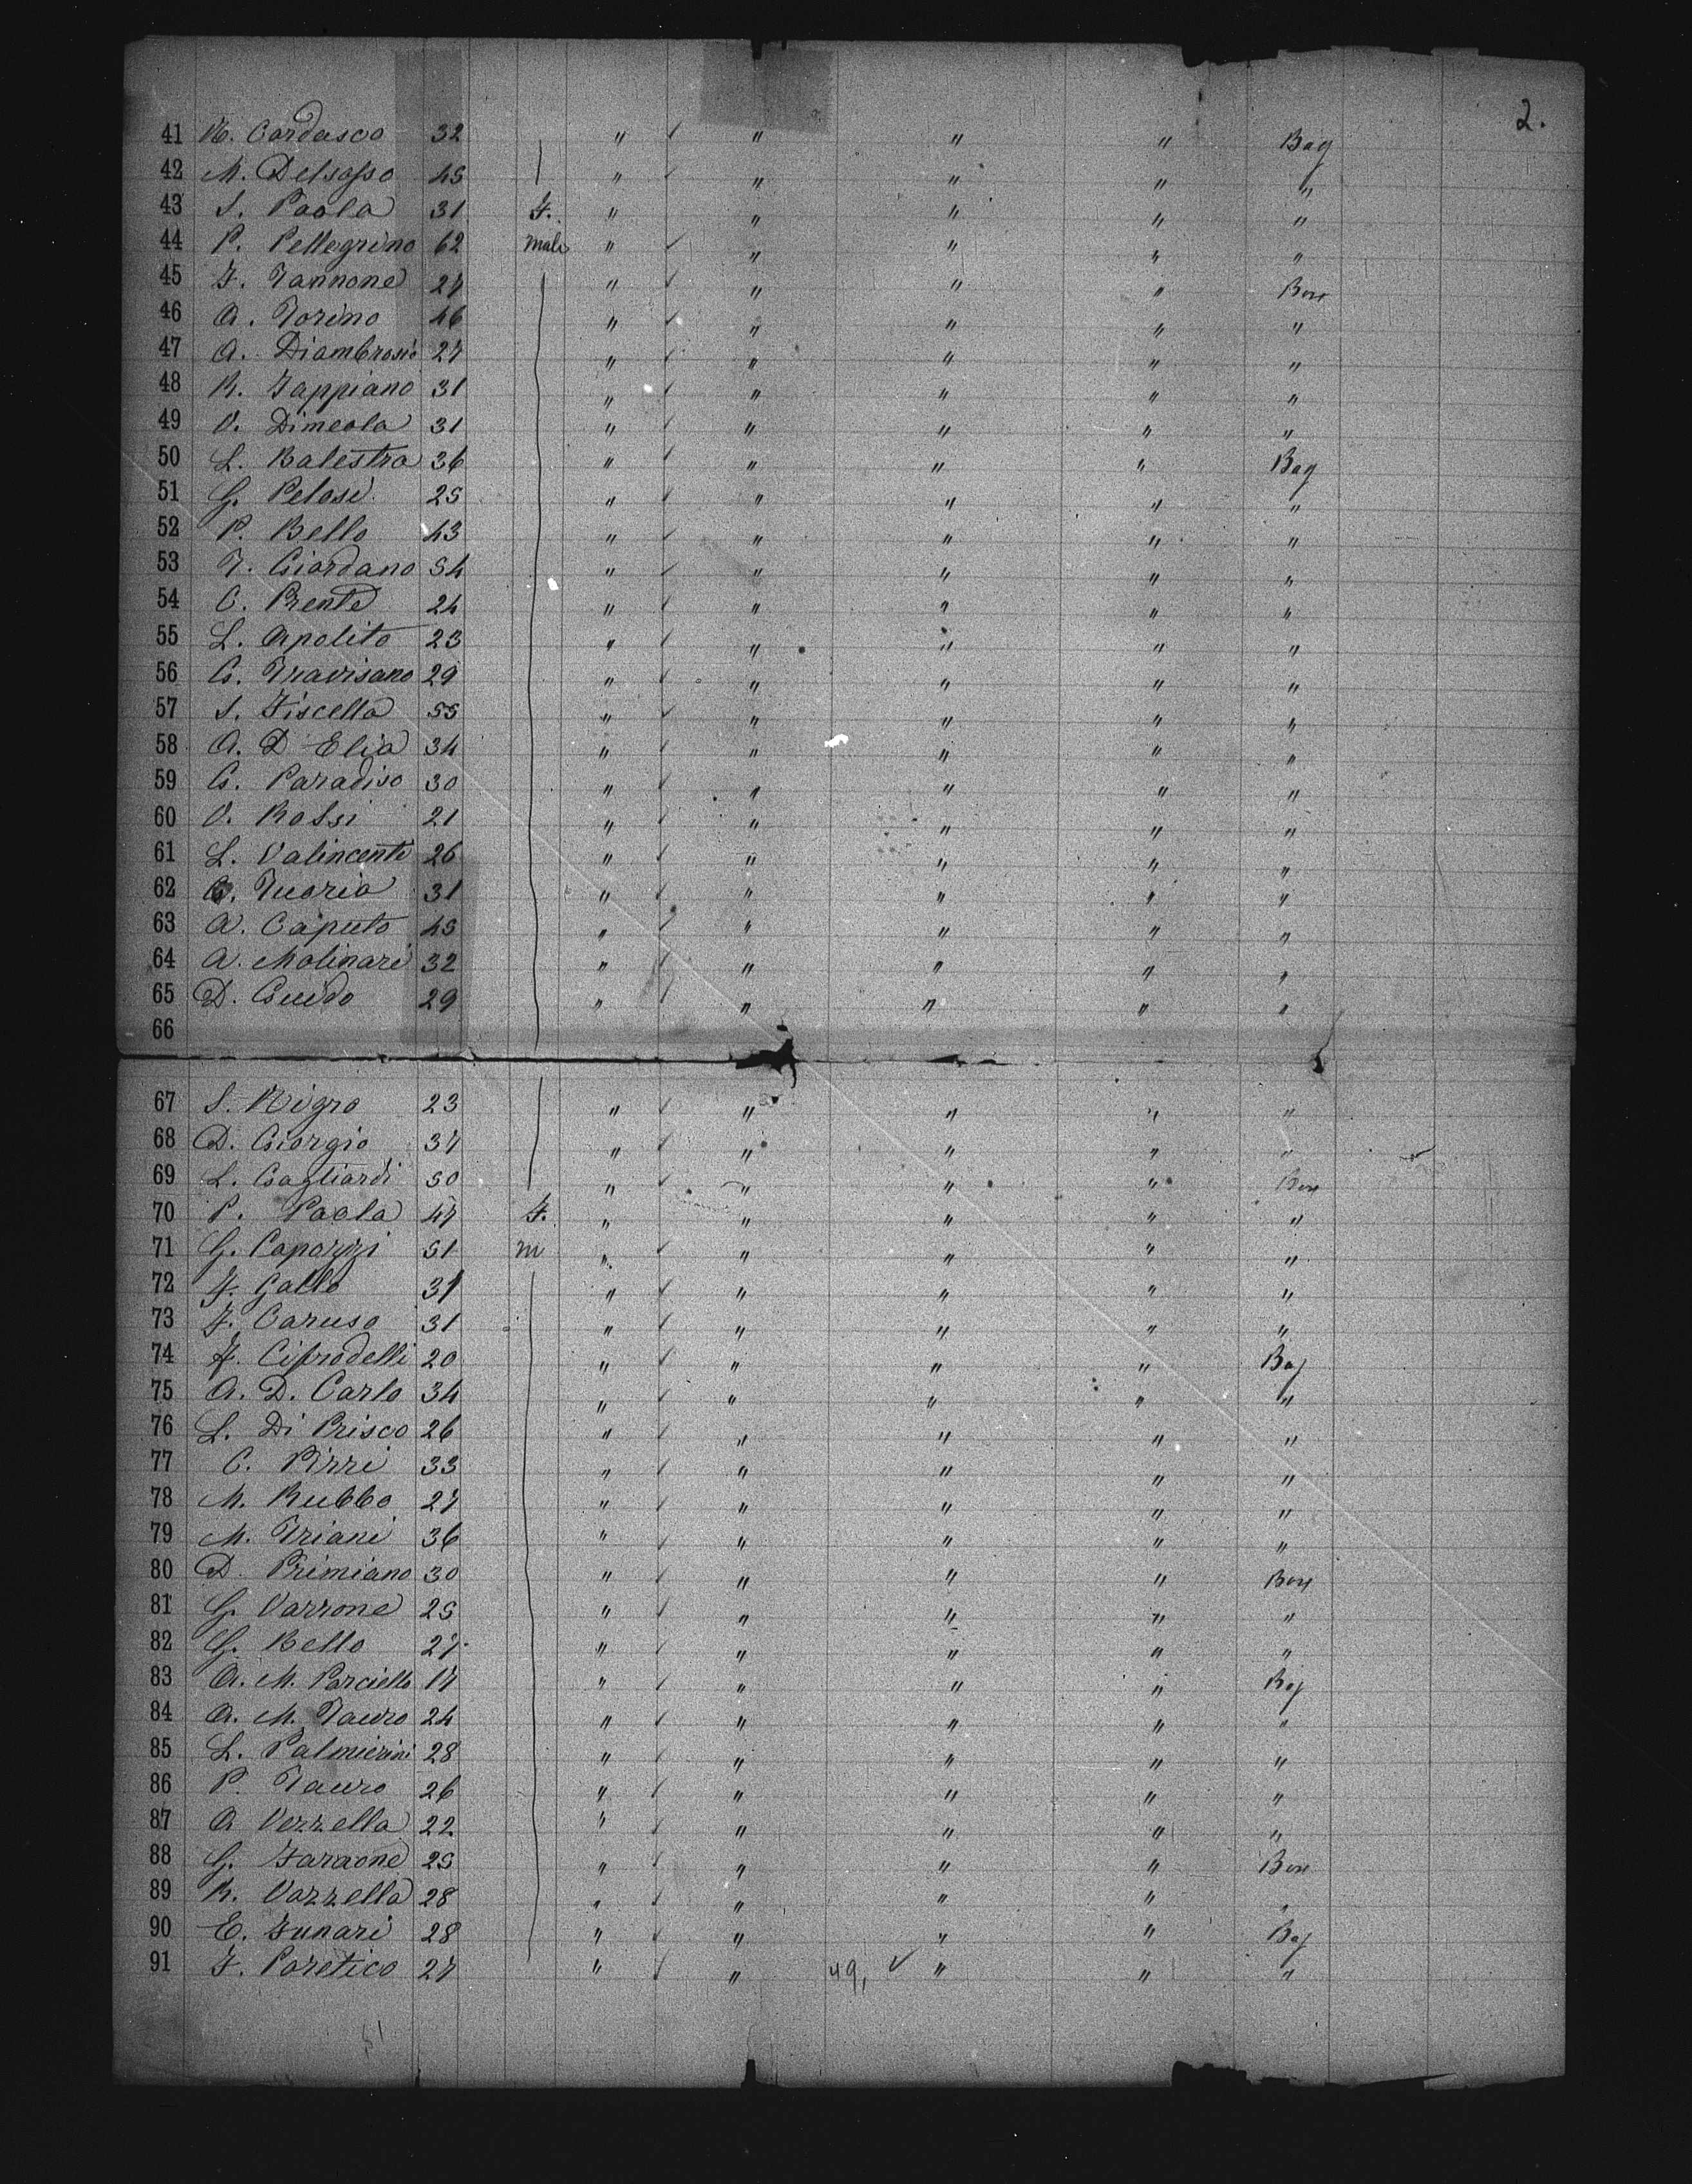 2.
41 N. Cardasco 32 " ✓ " " " Bag
42 M. Delsasso 45 " ✓ " " " "
43 S. Paola 31 F. " " " " "
44 P. Pellegrino 62 Male " ✓ " " " "
45 F. Iannone 27 " ✓ " " " Box
46 A. Torino 46 " ✓ " " " "
47 A. Diambrosio 27 " ✓ " " " "
48 R. Fappiano 31 " ✓ " " " "
49 V. Dimeola 31 " ✓ " " " "
50 L. Balestra 36 " ✓ " " " Bag
51 G. Pelosi 25 " ✓ " " " "
52 P. Bello 43 " ✓ " " " "
53 T. Giordano 54 " ✓ " " " "
54 C. Prente 24 " ✓ " " " "
55 L. Apolito 23 " ✓ " " " "
56 G. Travisano 29 " ✓ " " " "
57 S. Fiscella 55 " ✓ " " " "
58 A. D Elia 34 " ✓ " " " "
59 G. Paradiso 30 " ✓ " " " "
60 V. Rossi 21 " ✓ " " " "
61 L. Valincenti 26 " ✓ " " " "
62 Tuoria 31 " ✓ " " " "
63 A. Caputo 45 " ✓ " " " "
64 A. Molinari 32 " ✓ " " " "
65 D. Guido 29 " ✓ " " " "
66
67 S. Nigro 23 " ✓ " " " "
68 D. Giorgio 37 " ✓ " " " "
69 L. Gagliardi 50 " ✓ " " " Box
70 P. Paola 47 F. " " " " "
71 G. Capozzi 51 M " ✓ " " " "
72 F. Gallo 31 " ✓ " " " "
73 F. Caruso 31 " ✓ " " " "
74 F. Ciprodelli 20 " ✓ " " " Bag
75 A. D. Carlo 34 " ✓ " " " "
76 L. Di Prisco 26 " ✓ " " " "
77 C. Pirri 33 " ✓ " " " "
78 M. Rubbo 27 " ✓ " " " "
79 M. Triani 36 " ✓ " " " "
80 D. Primiano 30 " ✓ " " " Box
81 G. Varrone 25 " ✓ " " " "
82 G. Bello 27 " ✓ " " " "
83 A. M. Porciello 17 " ✓ " " " Bag
84 A. M. Tauro 24 " ✓ " " " "
85 L. Palmierini 28 " ✓ " " " "
86 P. Tauro 26 " ✓ " " " "
87 A Vozzella 22 " ✓ " " " "
88 G. Faraone 25 " ✓ " " " Box
89 R. Vozzella 28 " ✓ " " " "
90 E. Funari 28 " ✓ " " " Bag
91 F. Poretico 27 " ✓ " 49, ✓ " " "
51